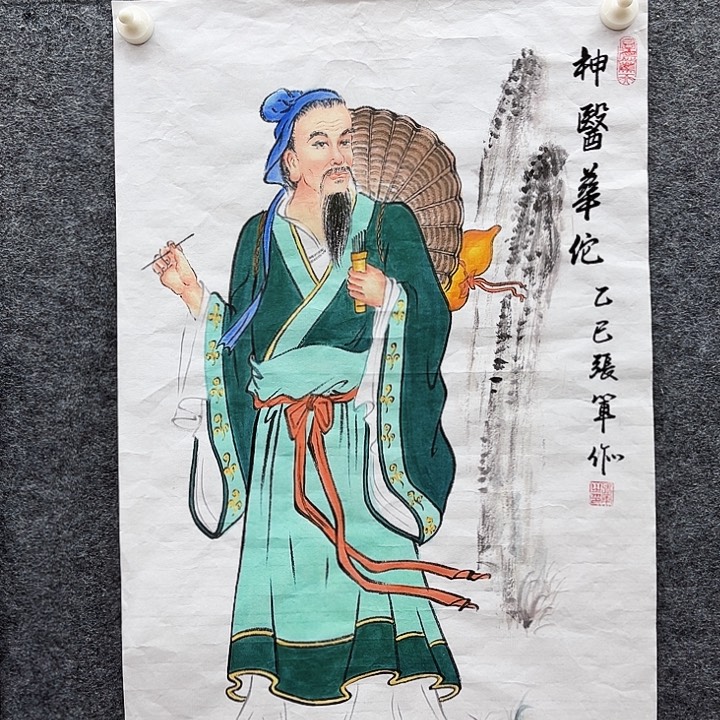 神醫華佗
乙巳張軍作